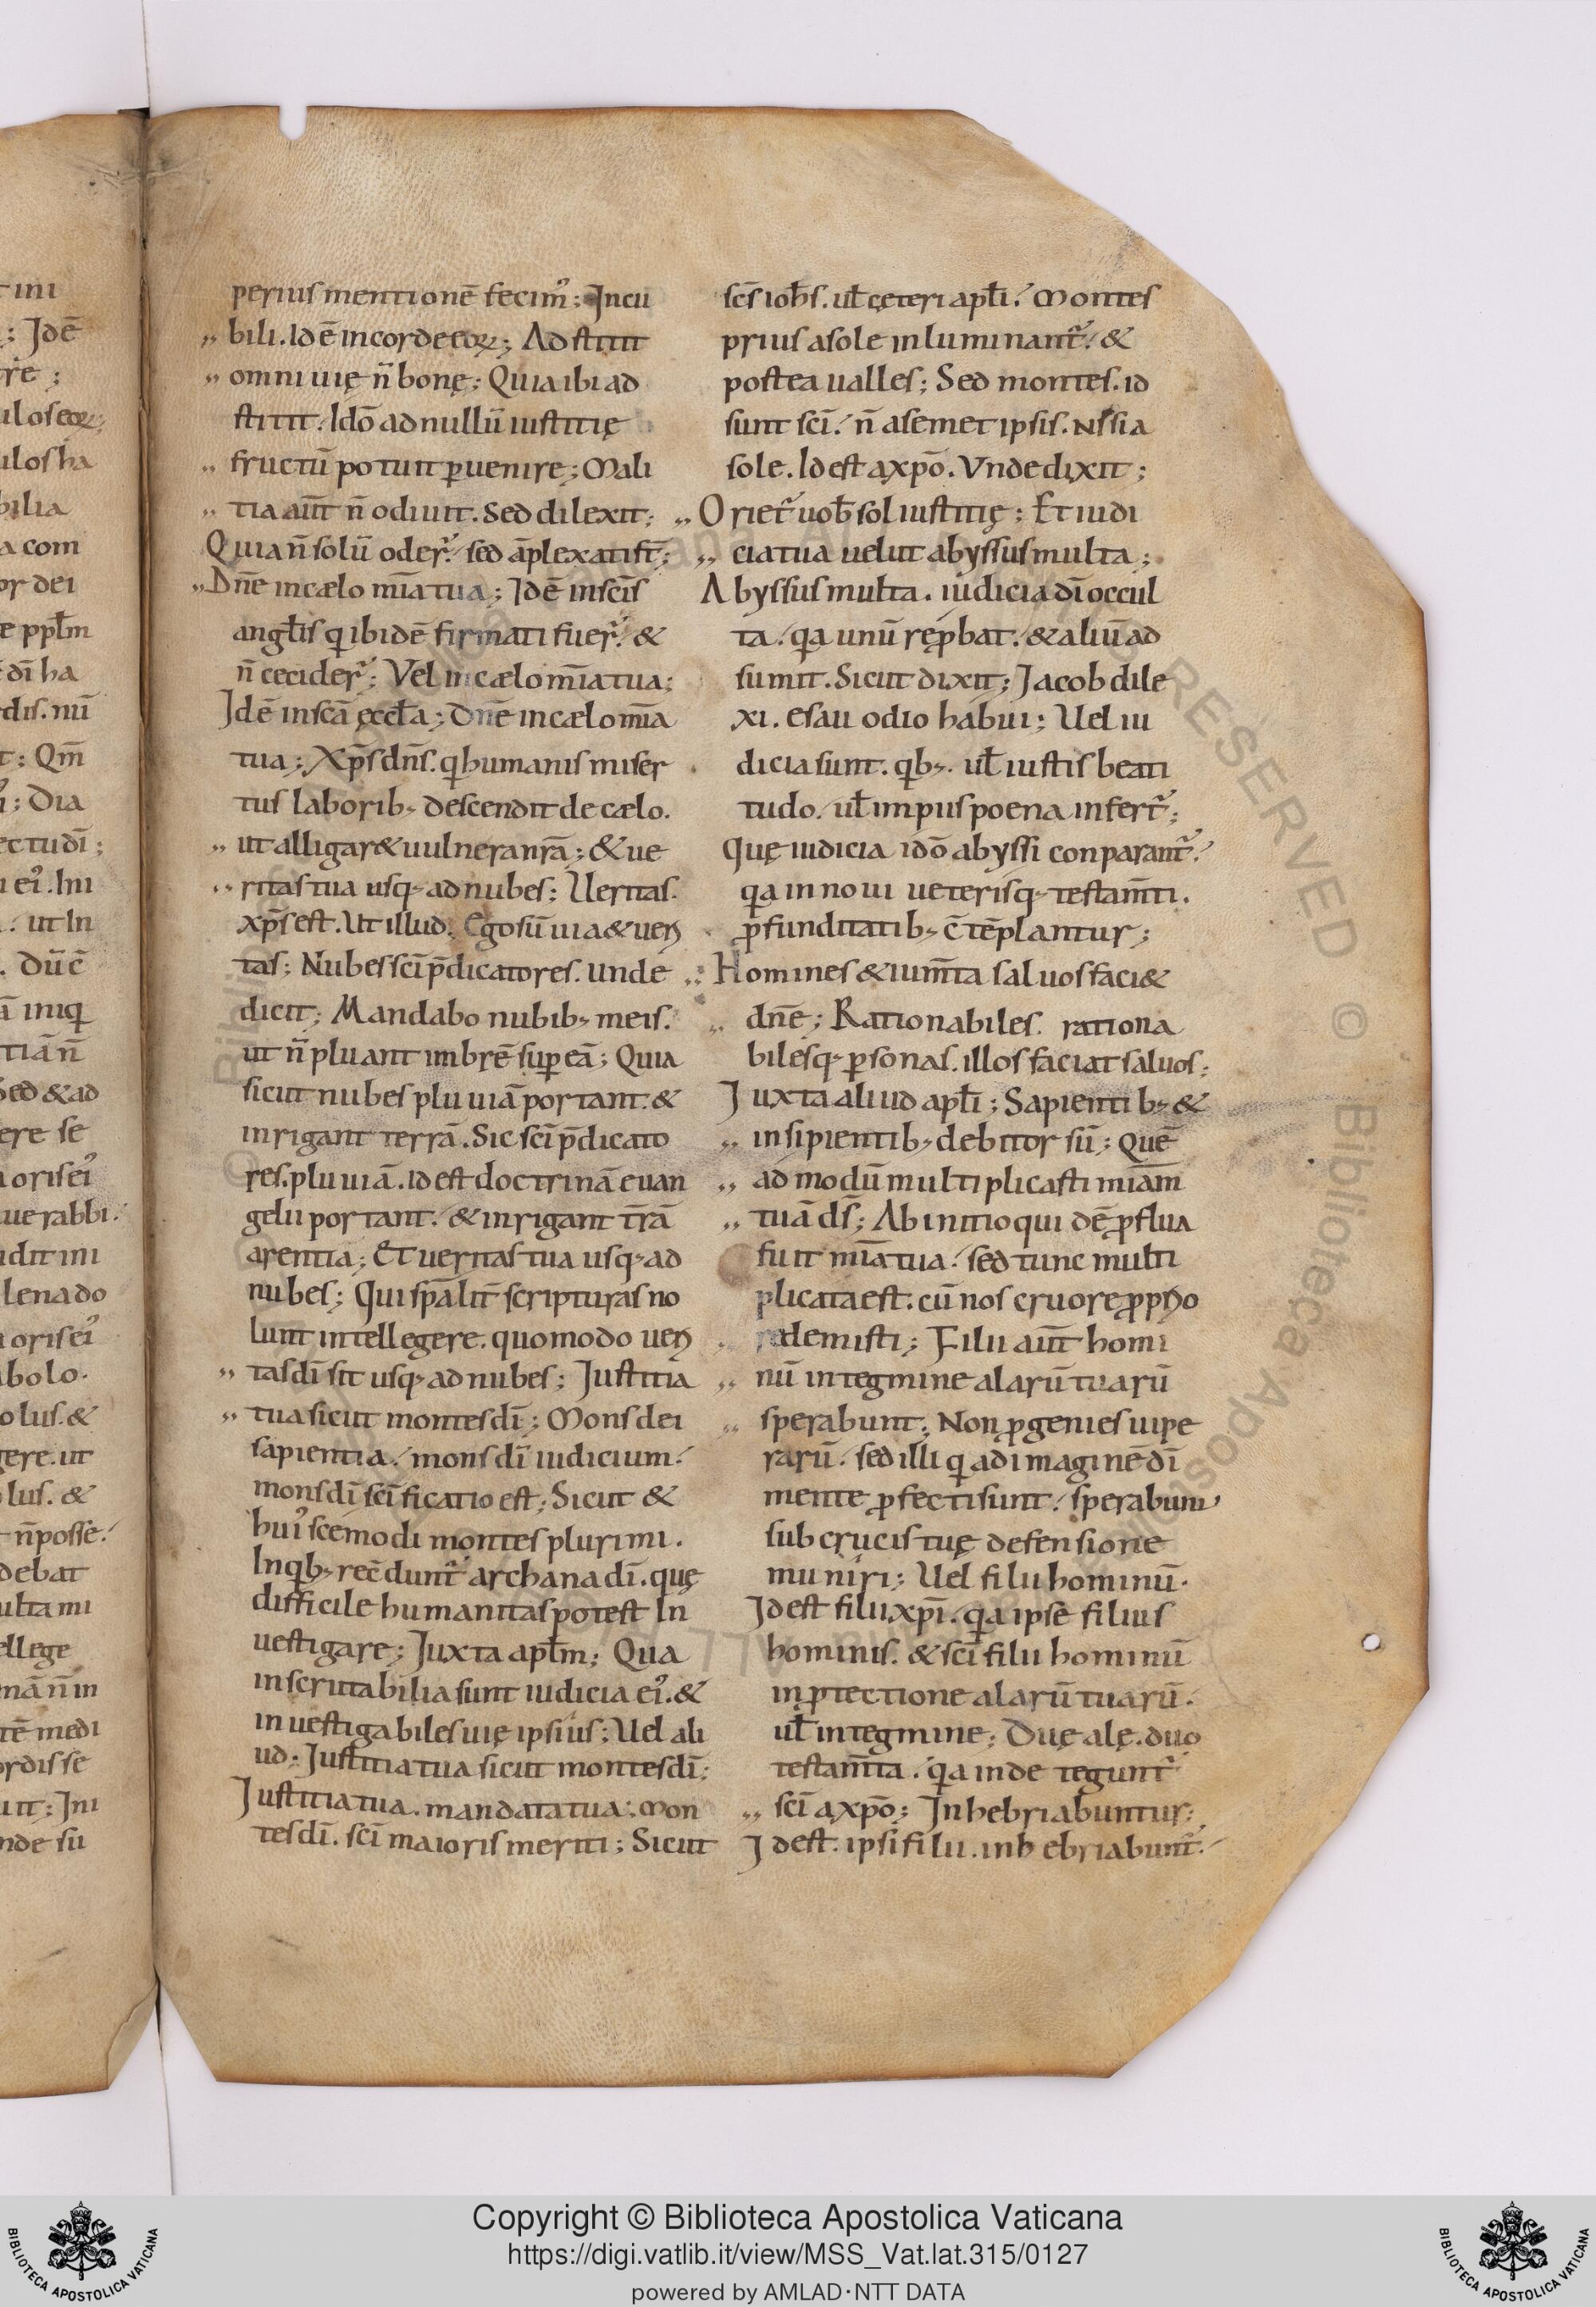 t ini
; Idē
tr̄e ;
ulos eoꝝ;
ulos ha
bilia
a com
or dei
e ppłm
dī ha
rdis. nū
t: Qm̄
; Dia
ectu dī;
eiꝰ. Ini
ut In
. Dū c̄
ā iniq
tiā n̄
Sed & ad
ere se
oris eiꝰ
ue rabbi.
dit ini
lena do
oris eiꝰ
abolo.
olus. &
gere. ut
lus. &
n̄ posse.
debat
ulta mi
ellege
mā n̄ in
tē medi
ordis se
uit; Ini
nde su
perius mentionē fecimꝰ; Incu
„ bili. Idē in corde eoꝝ; Adstitit
„ omni uię n̄ bonę; Quia ibi ad
stitit. Idō ad nullū iustitię
„ fructū potuit ꝑuenire; Mali
„ tia aūt n̄ odiuit. Sed dilexit;
Quia n̄ solū oder̄. sed āplexati st̄;
„ Dn̄e in cælo mīa tua; Idē in scīs
angłis q ibidē firmati fuer̄. &
n̄ cecider̄; Vel in cælo mīa tua;
Idē in scā ęccła; Dn̄e in cælo mīa
tua; Xp̄s dn̄s. q humanis miser
tus laborib; descendit de cælo.
„ ut alligar& uulnera nr̄ā; & ue
„ ritas tua usq; ad nubes; Ueritas.
xp̄s est. Ut illud. Ego sū uia & ueri
tas; Nubes scī p̄dicatores. Unde
dicit; Mandabo nubib; meis.
ut n̄ pluant imbrē suꝑ eā; Quia
sicut nubes pluuiā portant. &
inrigant terrā. Sic scī p̄dicato
res. pluuiā. id est doctrinā euan
gelii portant. & inrigant tr̄ā
arentia; Et ueritas tua usq; ad
nubes; Qui sp̄alit̄ scripturas no
lunt intellegere. quomodo ueri
„ tas dī sit usq; ad nubes; Iustitia
„ tua sicut montes dī; Mons dei
sapientia. mons dī iudicium.
mons dī scīficatio est; Sicut &
huiꝰscemodi montes plurimi.
In qb; recēdunt̄ archana dī. quę
difficile humanitas potest In
uestigare; Iuxta apłm; Qua
inscrutabilia sunt iudicia eiꝰ. &
inuestigabiles uię ipsius; Uel ali
ud; Iustitia tua sicut montes dī;
Iustitia tua. mandata tua; Mon
tes dī. scī maioris meriti; Sicut
scs̄ ioħs. uł ceteri apłi. Montes
prius a sole inluminant̄. &
postea ualles; Sed montes. id
sunt scī. n̄ a semet ipsis. Nisi a
sole. Id est a xp̄o. Vnde dixit;
„ Oriet̄ uob̄ sol iustitię; Et iudi
„ cia tua uelut abyssus multa;
Abyssus multa. iudicia dī occul
ta. qa unū rep̱bat. & aliū ad
sumit. Sicut dixit; Jacob dile
xi. esau odio habui; Uel iu
dicia sunt. qb;. uł iustis beati
tudo. uł impiis poena infert̄;
Quę iudicia idō abyssi conparant̄.
qa in noui ueterisq; testam̄ti.
ꝓfunditatib; c̄tēplantur;
„ Homines & ium̄ta saluos faci&
„ dn̄e; Rationabiles. rationa
bilesq; ꝑsonas. illos faciat saluos;
Iuxta aliud apłi; Sapientib; &
„ insipientib; debitor sū; Quē
„ ad modū multiplicasti miām
„ tuā ds̄; Ab initio qui dē ꝓflua
fuit mīa tua. sed tunc multi
plicata est. cū nos cruore ꝓprio
„ redemisti; Filii aūt homi
„ nū in tegmine alarū tuarū
„ sperabunt; Non ꝓgenies uipe
rarū. sed illi q ad imaginē dī
mente ꝑfecti sunt. sperabunt
sub crucis tuę defensione
muniri; Uel filii hominū.
Id est filii xp̄i. qa ipse filius
hominis. & scī filii hominū
in ꝓtectione alarū tuarū.
uł in tegmine; Duę alę. duo
testam̄ta. qa inde tegunt̄
„ scī a xp̄o; Inhebriabuntur;
Id est. ipsi filii. inhebriabunt̄.
Copyright © Biblioteca Apostolica Vaticana
https://digi.vatlib.it/view/MSS_Vat.lat.315/0127
powered by AMLAD·NTT DATA
BIBLIOTECA APOSTOLICA VATICANA
BIBLIOTECA APOSTOLICA VATICANA